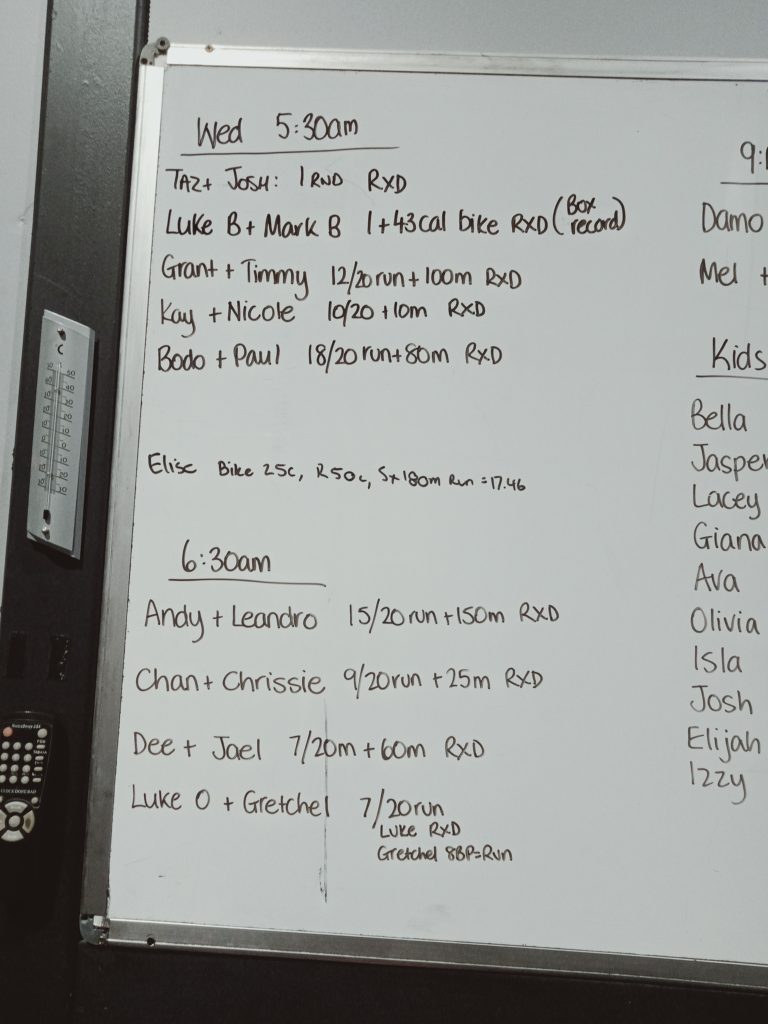 Wed 5:30am
TAZ + JOSH: 1 RND RXD
Luke B + Mark B 1+43cal bike RXD (Box record)
Grant + Timmy 12/20 run + 100m RXD
Kay + Nicole 10/20 + 10m RXD
Bodo + Paul 18/20 run + 80m RXD
Elise Bike 25c, R50c, 5x180m Run = 17.46
6:30am
Andy + Leandro 15/20 run + 150m RXD
Chan + Chrissie 9/20 run + 25m RXD
Dee + Jael 7/20m + 60m RXD
Luke O + Gretchel 7/20 run
Luke RXD
Gretchel 8BP=Run
Damo
Mel +
Kids
Bella
Jasper
Lacey
Giana
Ava
Olivia
Isla
Josh
Elijah
Izzy